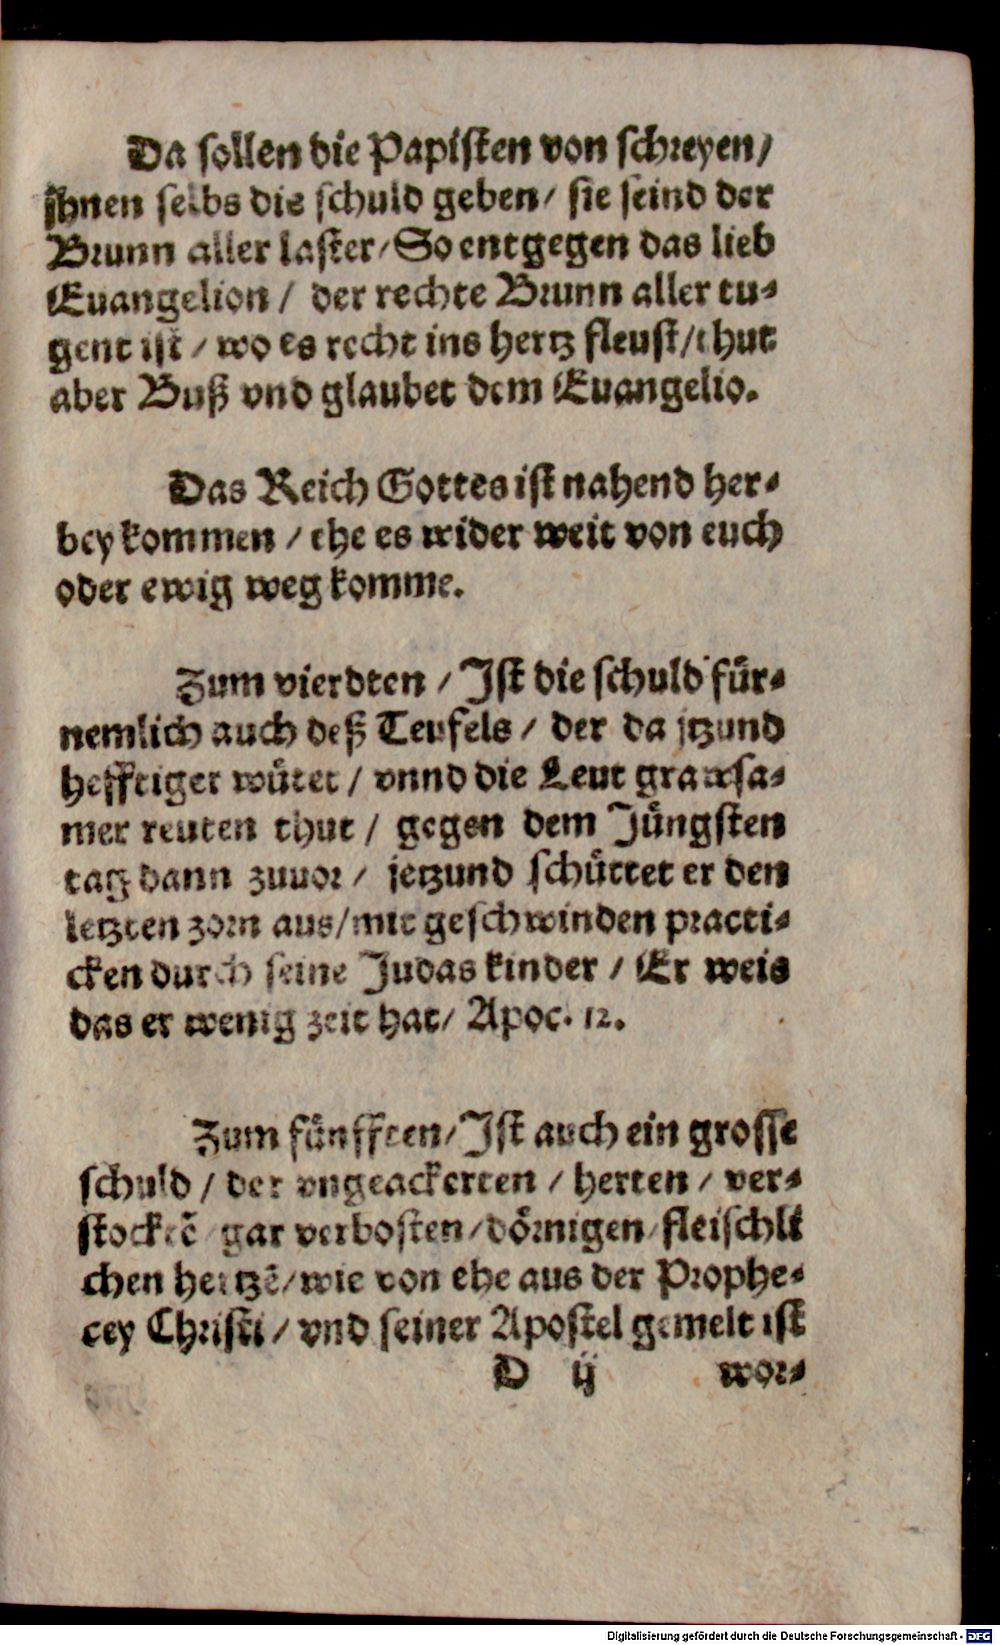 Da sollen die Papisten von schreyen/
ihnen selbs die schuld geben/ sie seind der
Brunn aller laster/ So entgegen das lieb
Euangelion / der rechte Brunn aller tu-
gent ist / wo es recht ins hertz fleust/thut
aber Buß vnd glaubet dem Euangelio.
Das Reich Gottes ist nahend her-
bey kommen / ehe es wider weit von euch
oder ewig weg komme.
Zum vierdten / Ist die schuld für-
nemlich auch deß Teufels / der da jtzund
hefftiger wütet / vnnd die Leut grawsa-
mer reuten thut / gegen dem Jüngsten
tag dann zuuor / jetzund schüttet er den
letzten zorn aus/mit geschwinden practi-
cken durch seine Judas kinder / Er weis
das er wenig zeit hat/ Apoc. 12.
Zum fünfften/ Ist auch ein grosse
schuld / der vngeackerten / herten / ver-
stocktē gar verbosten/dörnigen/fleischli
chen hertzē/wie von ehe aus der Prophe-
cey Christi / vnd seiner Apostel gemelt ist
D ij wor-
Digitalisierung gefördert durch die Deutsche Forschungsgemeinschaft - DFG